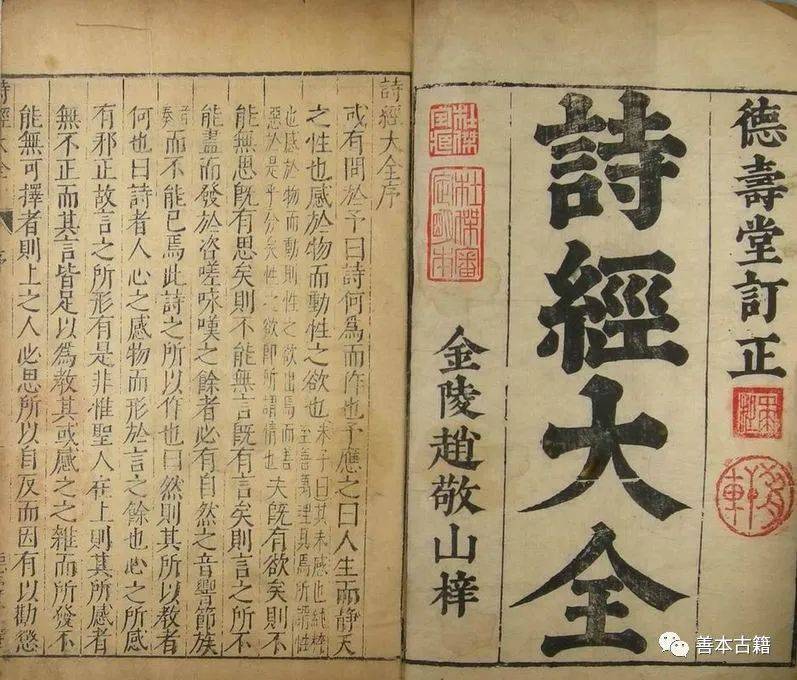 德壽堂訂正
詩經大全
金陵趙敬山梓
詩經大全序
或有問於予曰詩何為而作也予應之曰人生而静天
之性也感於物而動性之欲也朱子曰其未感也純粹至善萬理具焉所謂性
也感於物而動則性之欲出焉而善惡於是乎分矣性之欲即所謂情也夫旣有欲矣則不
能無思旣有思矣則不能無言旣有言矣則言之所不
能盡而發於咨嗟咏嘆之餘者必有自然之音響節族
音奏而不能已焉此詩之所以作也曰然則其所以教者
何也曰詩者人心之感物而形於言之餘也心之所感
有邪正故言之所形有是非惟聖人在上則其所感者
無不正而其言皆足以為教其或感之之雜而所發不
能無可擇者則上之人必思所以自反而因有以勸懲
詩經大全
序
善本古籍